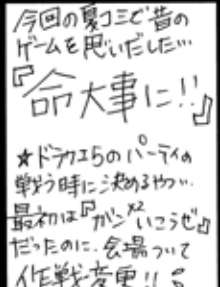 今回の夏コミで昔の
ゲームを思いだした…
『命大事に!!』
★ドラクエ5のパーティの
戦う時に決めるやつ…
最初は『ガンx2いこうぜ』
だったのに、会場ついて
作戦変更!!